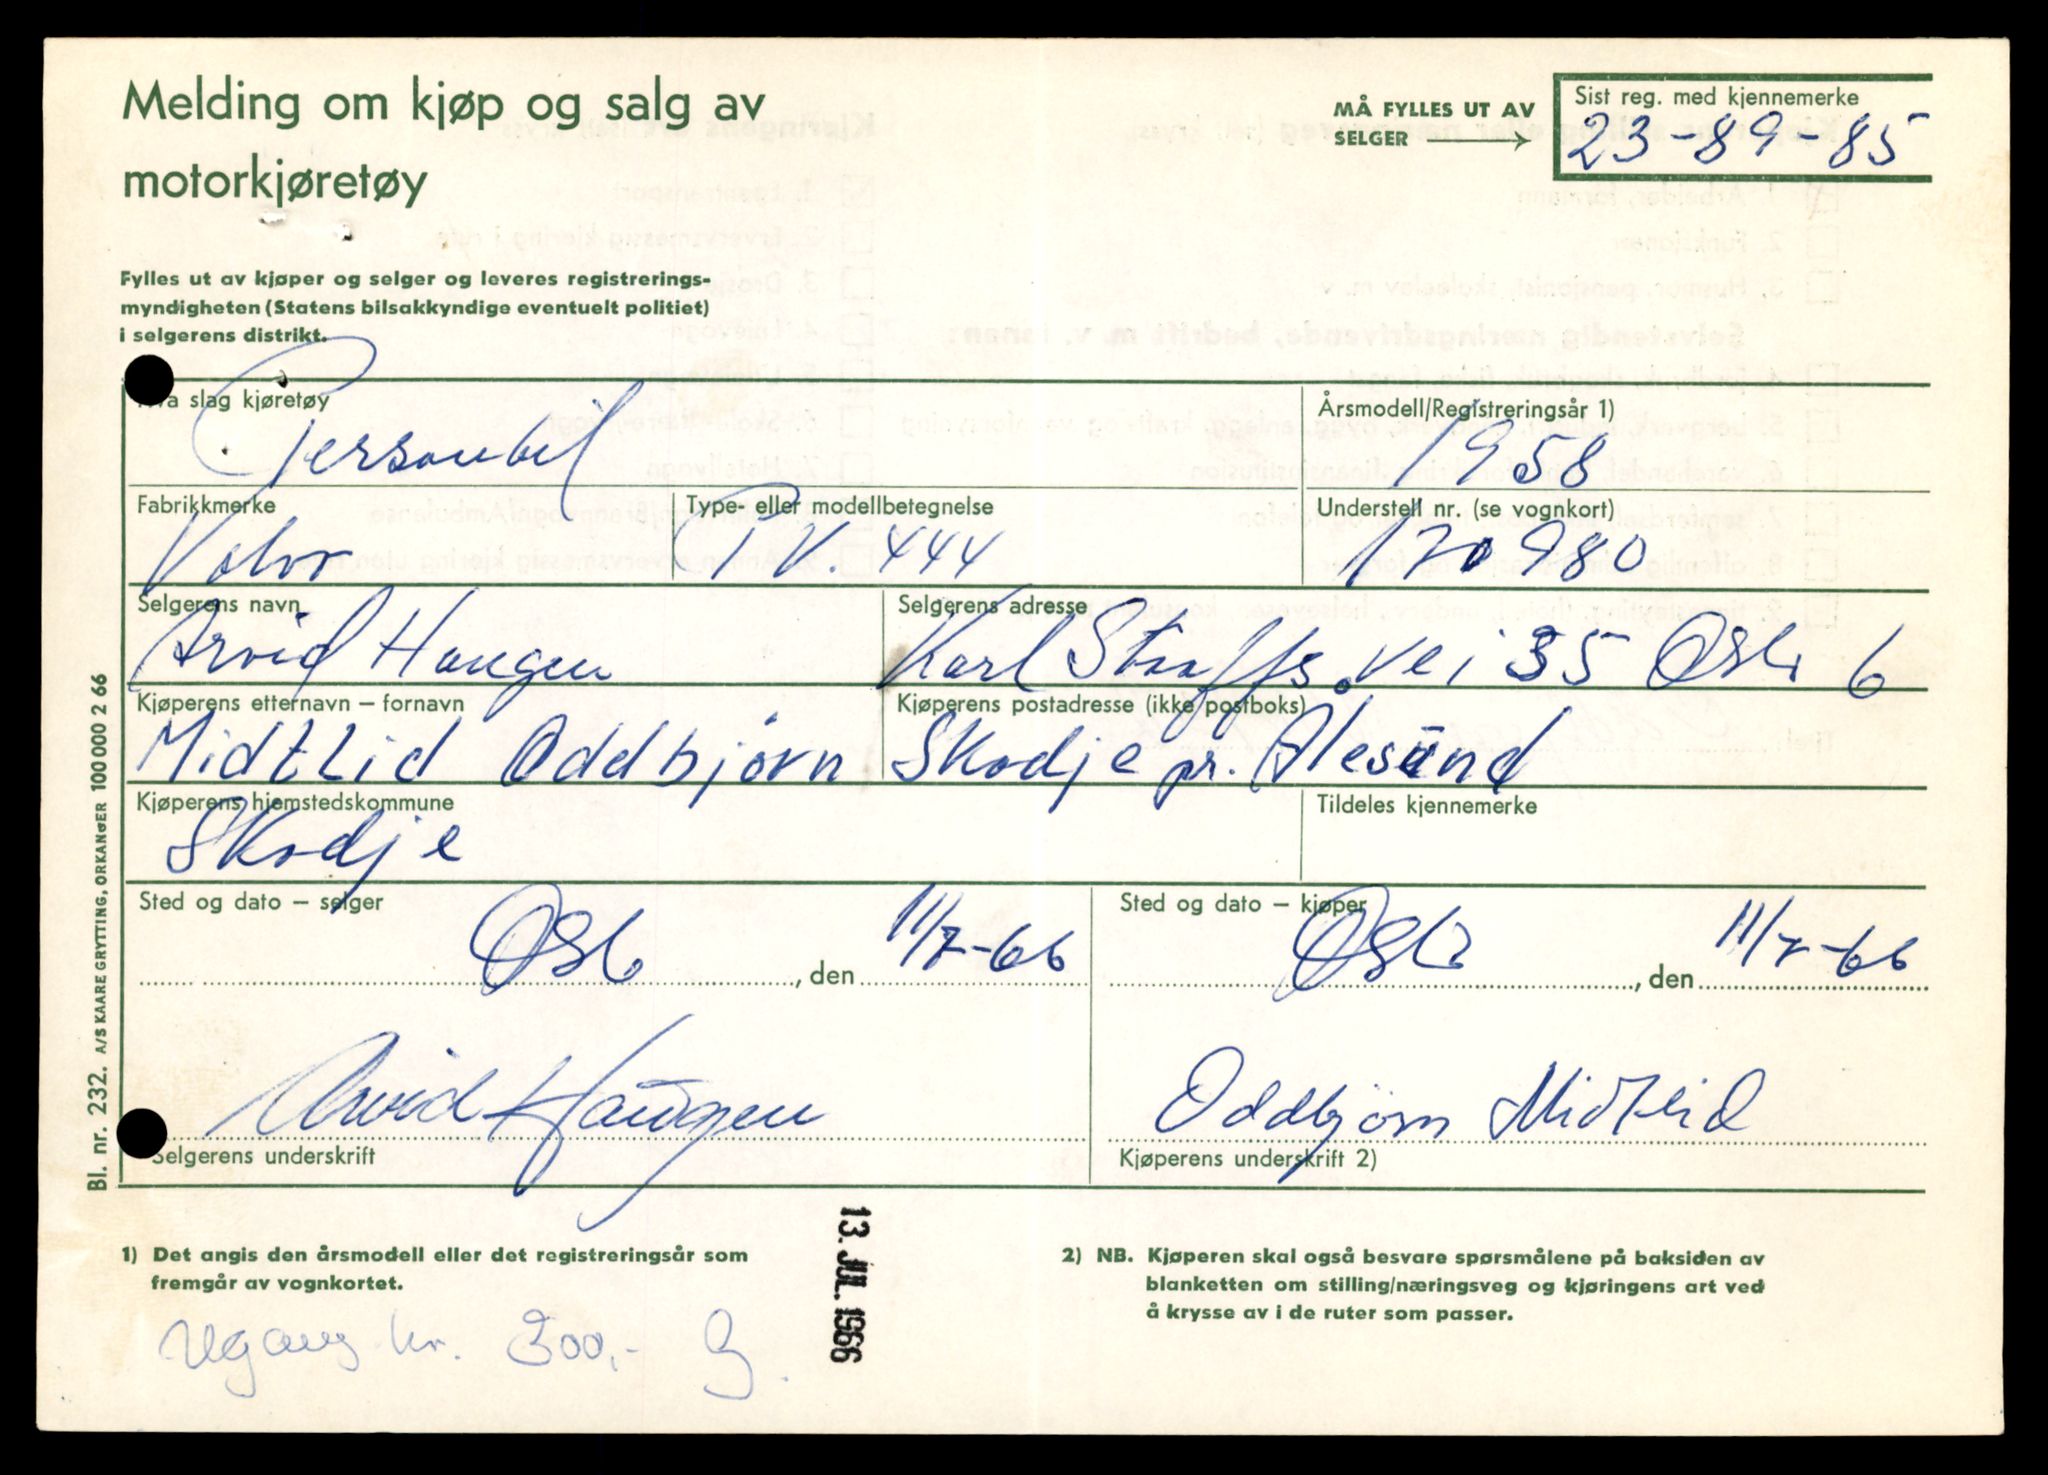 Melding om kjøp og salg av
motorkjøretøy
MÅ FYLLES UT AV
SELGER
Sist reg. med kjennemerke
23-89-85
Fylles ut av kjøper og selger og leveres registrerings-
myndigheten (Statens bilsakkyndige eventuelt politiet)
i selgerens distrikt.
slag kjøretøy
Personbil
Årsmodell/Registreringsår 1)
1958
Fabrikkmerke
Volvo
Type- eller modellbetegnelse
P.V. 444
Understell nr. (se vognkort)
170980
Selgerens navn
Arvid Haugen
Selgerens adresse
Karl Staffs vei 35 Oslo 6
Kjøperens etternavn – fornavn
Midtlid Oddbjørn
Kjøperens postadresse (ikke postboks)
Skodje pr. Ålesund
Kjøperens hjemstedskommune
Skodje
Tildeles kjennemerke
Sted og dato – selger
Oslo, den 11/7-66
Sted og dato – kjøper
Oslo, den 11/7-66
Arvid Haugen
Selgerens underskrift
Oddbjørn Midtlid
Kjøperens underskrift 2)
Bl. nr. 232. A/S KAARE GRYTTING, ORKANGER 100 000 2 66
1) Det angis den årsmodell eller det registreringsår som
fremgår av vognkortet.
13. JUL. 1966
2) NB. Kjøperen skal også besvare spørsmålene på baksiden av
blanketten om stilling/næringsveg og kjøringens art ved
å krysse av i de ruter som passer.
kr. 300,-